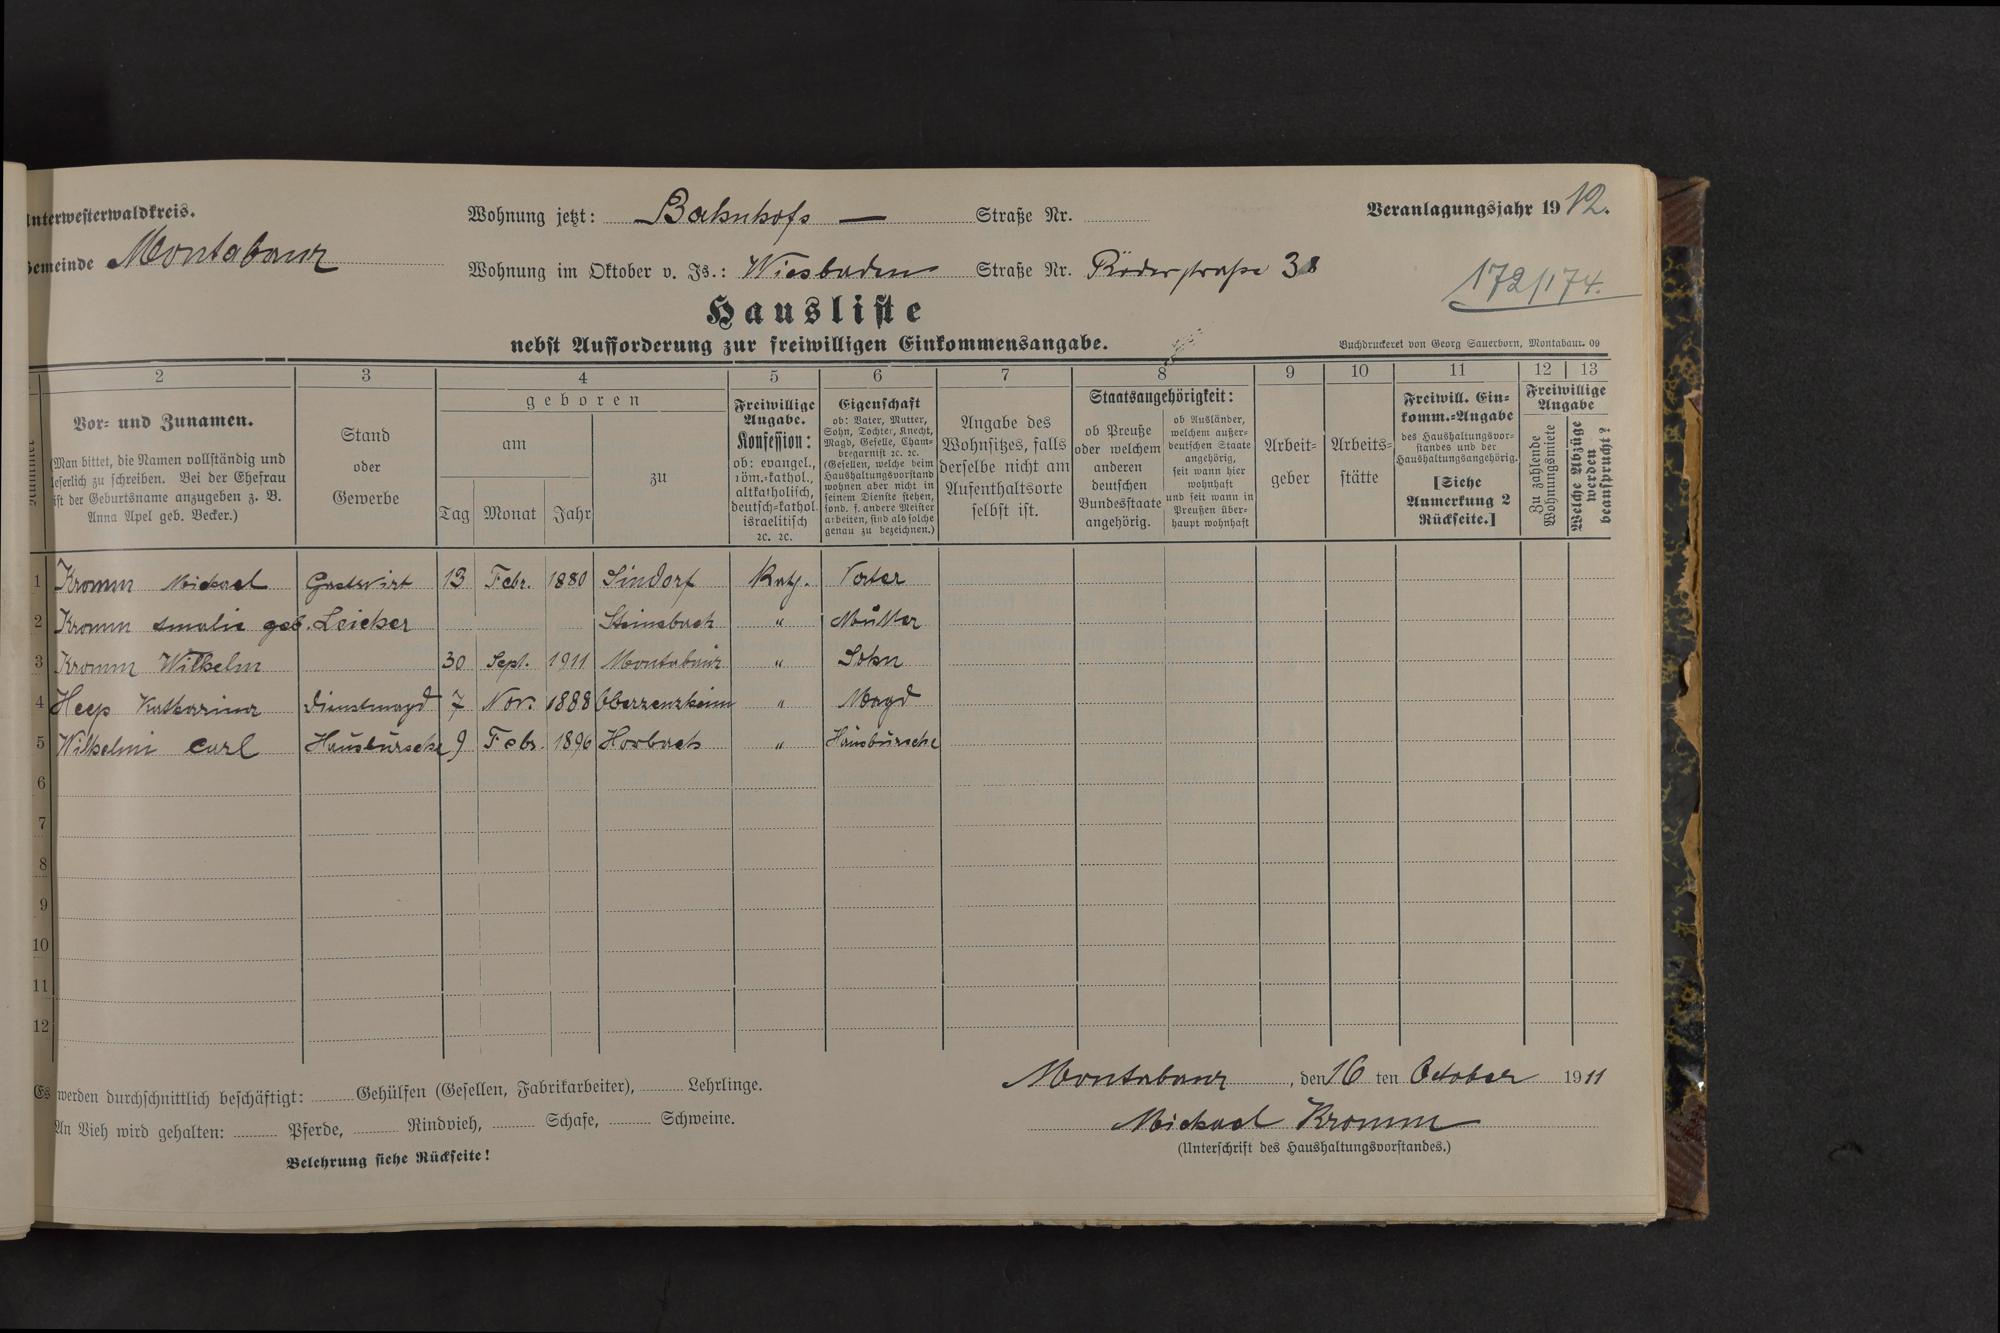 Unterwesterwaldkreis.
Wohnung jetzt: Bahnhofs — Straße Nr.
Veranlagungsjahr 1912.
Gemeinde Montabaur
Wohnung im Oktober v. Js.: Wiesbaden Straße Nr. Röderstraße 38
172/174.
Hausliste
nebst Aufforderung zur freiwilligen Einkommensangabe.
Buchdruckerei von Georg Sauerborn, Montabaur. 09
2 3 4 5 6 7 8 9 10 11 12 13
Nummer
Vor- und Zunamen.
(Man bittet, die Namen vollständig und
leserlich zu schreiben. Bei der Ehefrau
ist der Geburtsname anzugeben z. B.
Anna Apel geb. Becker.)
Stand
oder
Gewerbe
geboren
am
Tag Monat Jahr
zu
Freiwillige
Angabe.
Konfession:
ob: evangel.,
röm.-kathol.,
altkatholisch,
deutsch-kathol.
israelitisch
ꝛc. ꝛc.
Eigenschaft
ob: Vater, Mutter,
Sohn, Tochter, Knecht,
Magd, Geselle, Cham-
bregarnist ꝛc. ꝛc.
(Gesellen, welche beim
Haushaltungsvorstand
wohnen aber nicht in
seinem Dienste stehen,
sond. f. andere Meister
arbeiten, sind als solche
genau zu bezeichnen.)
Angabe des
Wohnsitzes, falls
derselbe nicht am
Aufenthaltsorte
selbst ist.
Staatsangehörigkeit:
ob Preuße
oder welchem
anderen
deutschen
Bundesstaate
angehörig.
ob Ausländer,
welchem außer-
deutschen Staate
angehörig,
seit wann hier
wohnhaft
und seit wann in
Preußen über-
haupt wohnhaft
Arbeit-
geber
Arbeits-
stätte
Freiwill. Ein-
komm.-Angabe
des Haushaltungsvor-
standes und der
Haushaltungsangehörig.
[Siehe
Anmerkung 2
Rückseite.]
Freiwillige
Angabe
Zu zahlende
Wohnungsmiete
Welche Abzüge
werden
beansprucht?
1 Kromm Michael Gastwirt 13 Febr. 1880 Sindorf Kath. Vater
2 Kromm Amalie geb. Leicher Steinebach " Mutter
3 Kromm Wilhelm 30 Sept. 1911 Montabaur " Sohn
4 Heep Katharina Dienstmagd 7 Nov. 1888 Oberzeuzheim " Magd
5 Wilhelmi Carl Hausbursche 9 Febr. 1896 Horbach " Hausbursche
6
7
8
9
10
11
12
Es werden durchschnittlich beschäftigt: Gehülfen (Gesellen, Fabrikarbeiter), Lehrlinge.
An Vieh wird gehalten: Pferde, Rindvieh, Schafe, Schweine.
Belehrung siehe Rückseite!
Montabaur, den 16 ten October 1911
Michael Kromm
(Unterschrift des Haushaltungsvorstandes.)